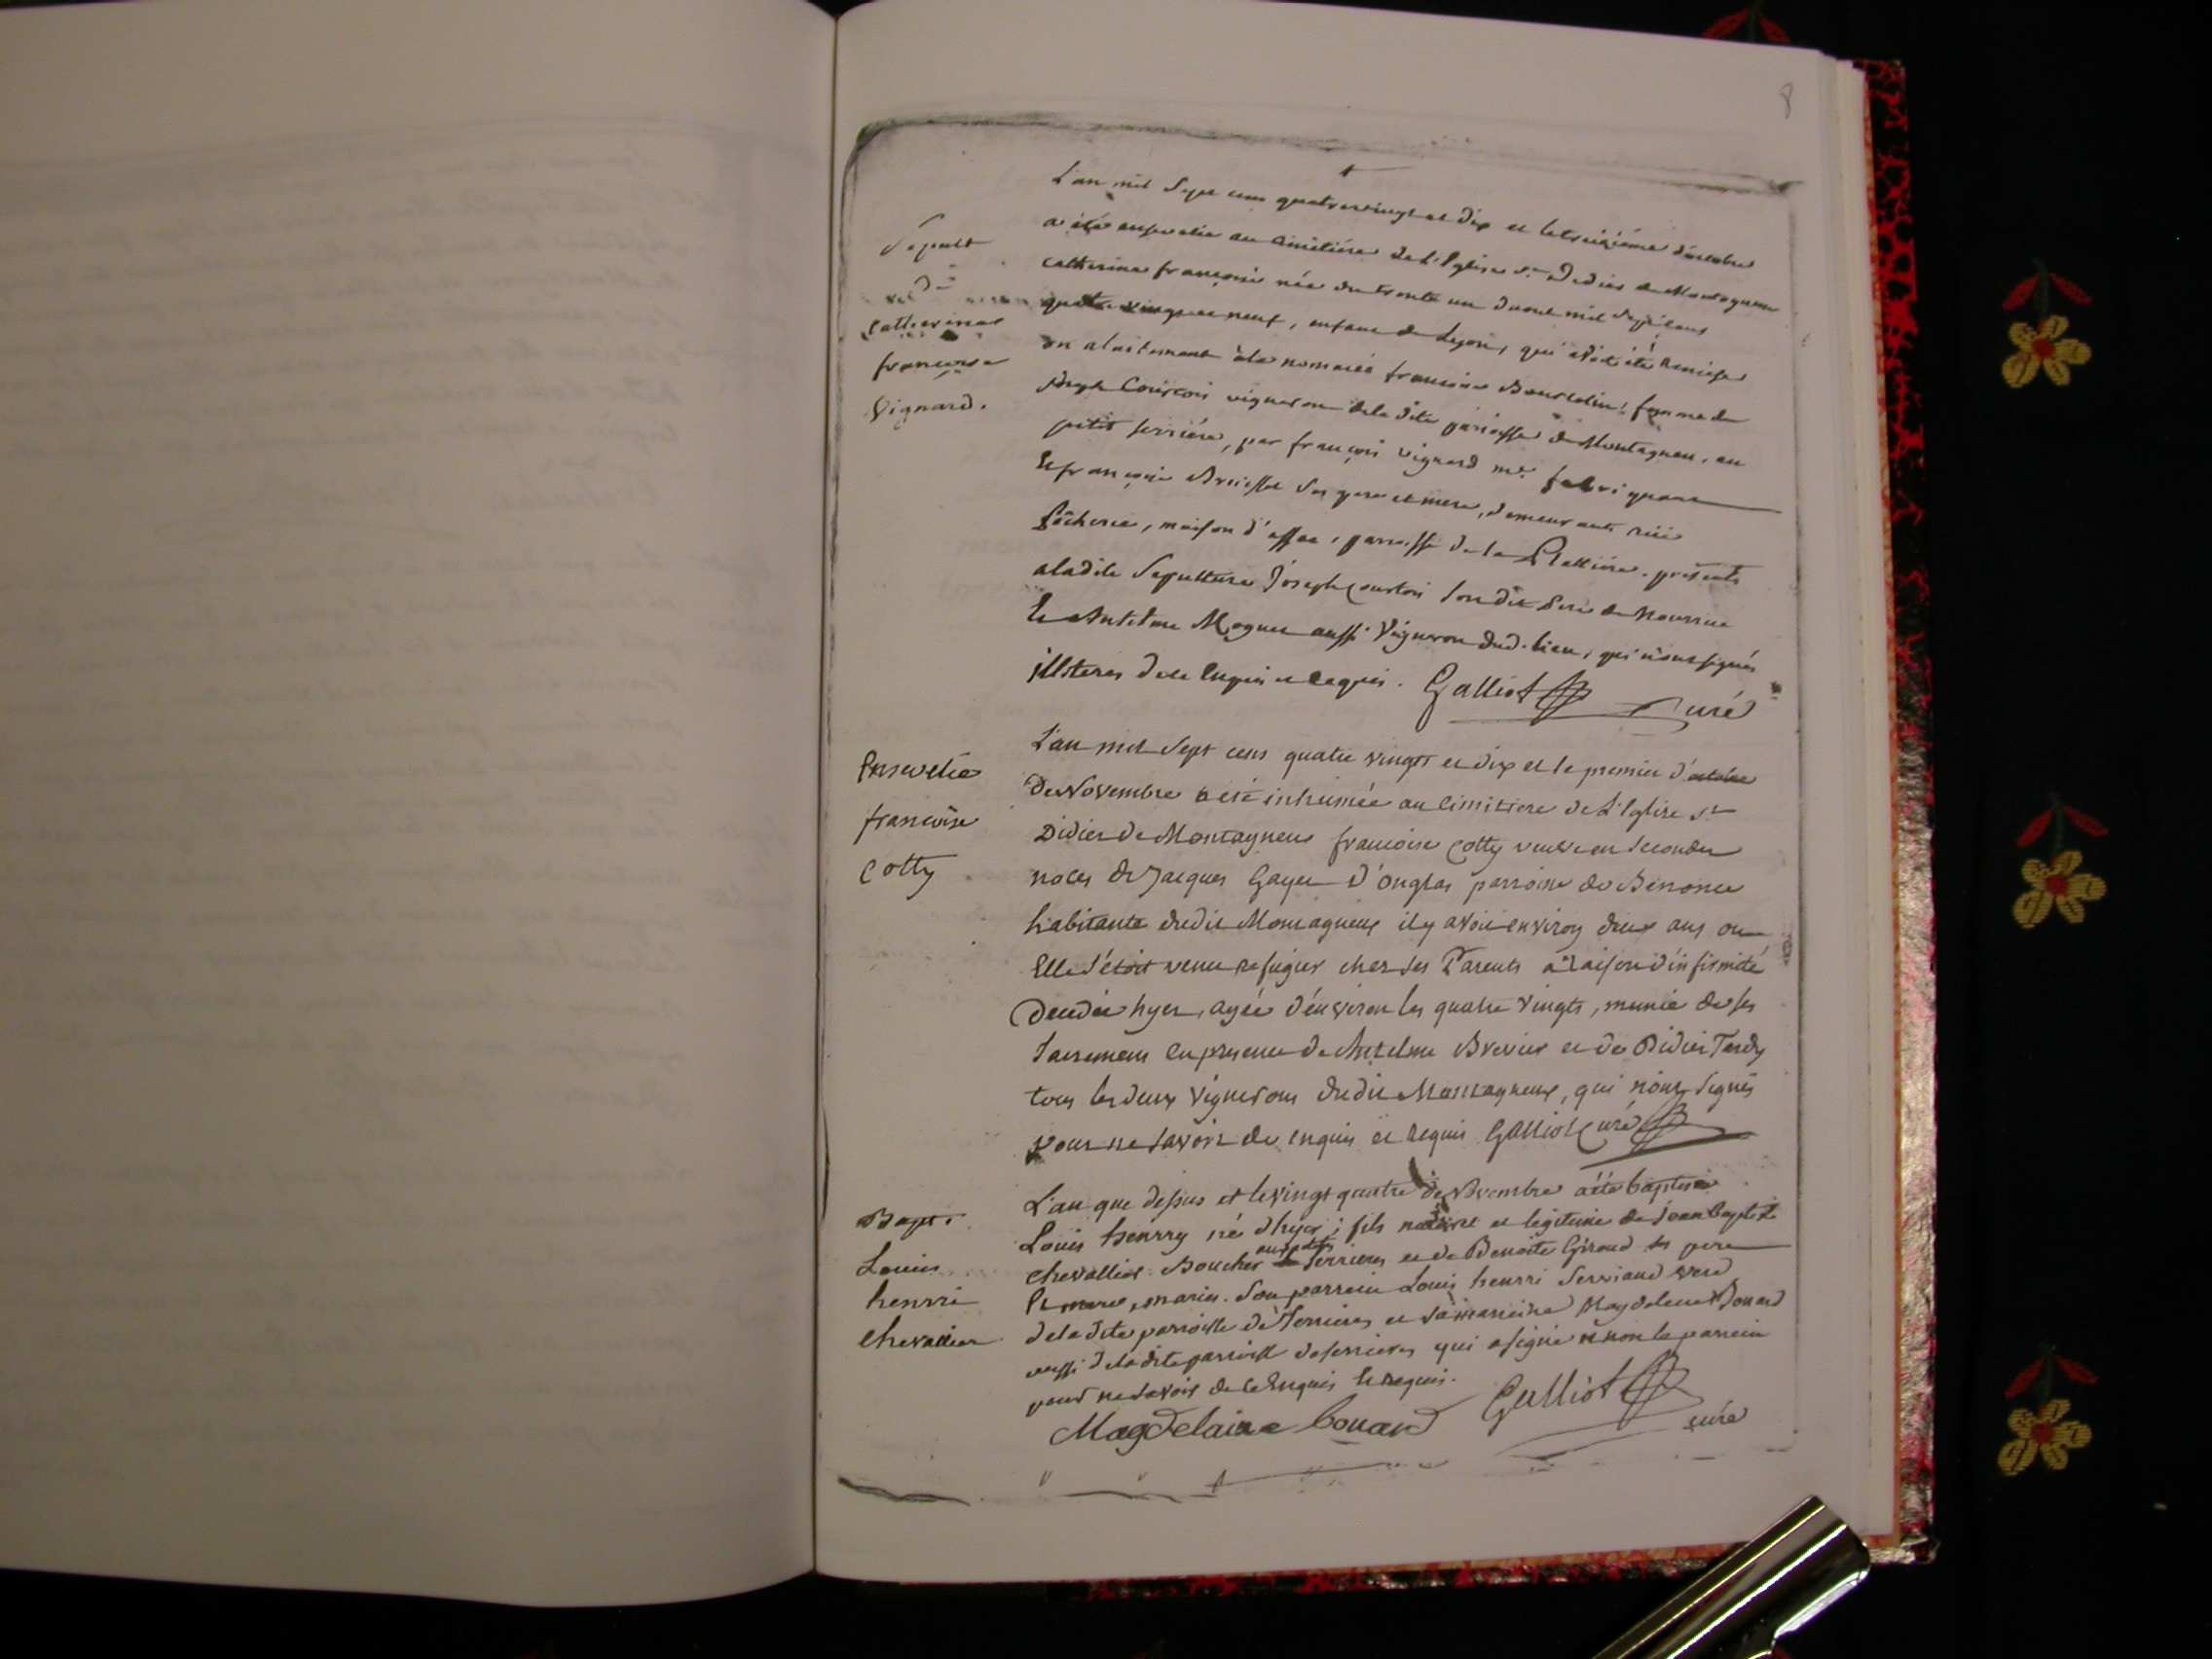 8
L'an mil Sept cens quatrevingt et dix et le treizième d'octobre
Sepult a été ensevelie au Cimitiére de L'Eglise st Didier de Montagneux
Catherine françoise née du trente un daout mil Sept Cens
Catherine quatre vingt et neuf, enfant de Lyon, qui avoit été Remise
françoise en alaitement à la nommée francoise Bourdelin, femme de
Vignard. Joseph Courtois vigneron de la dite paroisse de Montagneu, au
petit serriére, par françois vignard me fabriquant
Et françoise Brusset Ses pere et mere, demeurants rüe
Pêcherie, maison d'assac, parroisse de la Plattiére. présents
aladite Sepulture Joseph Courtois son dit Pere de Nourrice
Et Antelme Mognet aussi Vigneron dud. lieu, qui n'ont signés
illiteres de ce Enquis et Requis. Galliot Curé
Ensevelie
françoise
Cotty
L'an mil Sept cens quatre vingts et dix et le premier d'octobre
de Novembre a été inhumée au Cimitiere de L'Eglise st
Didier de Montagneux francoise Cotty veuve en Secondes
noces de Jacques Gayet d'Onglas parroisse de Benonce
habitante dudit Montagneux il y avoit environ deux ans ou
Elle s'étoit venu refugier chez ses Parents a Raison d'infirmité
Decedée hyer, agée d'environ les quatre vingts, munie de ses
Sacremens en presence de Antelme Brevier et de Didier Tardy
tous les deux Vignerons dudit Montagneux, qui n'ont Signés
pour ne savoir de enquis et Requis Galliot Curé
Bapt.
Louis
henrri
Chevallier
L'an que dessus et le vingt quatre de Novembre a été baptisé
Louis henrry né d'hyer ; fils naturel et legitime de Jean Baptiste
Chevallier Boucher au petit Serrieres et de Benoite Giroud ses pere
Et mere, mariés. Son parrain Louis henrri Serviand
de la dite parroisse de Serrieres et Sa marreine Magdeleine Bouard
aussi de la dite parroisse de serrieres qui a signé et non le parrein
pour ne savoir de ce Enquis Et Requis.
Magdelaine bouard Galliot curé